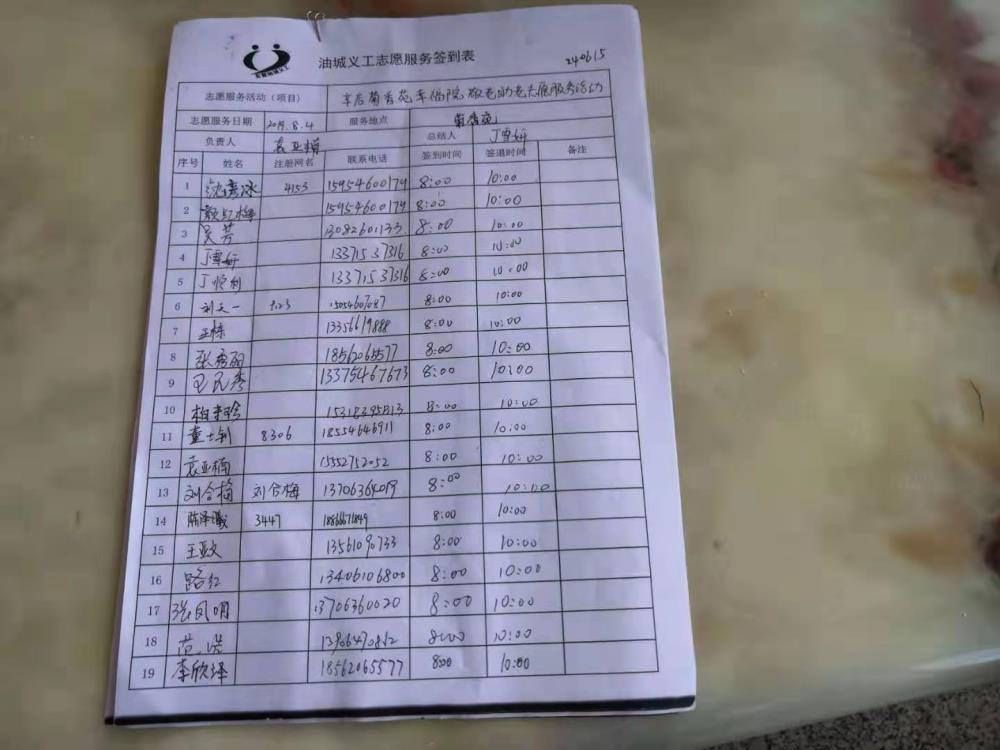 油城义工志愿服务签到表 240615
志愿服务活动（项目） 辛店菊香苑幸福院敬老助老志愿服务活动
志愿服务日期 2019.8.4 服务地点 菊香苑
负责人 袁亚楠 总结人 丁雪妍
序号 姓名 注册网名 联系电话 签到时间 签退时间 备注
1 沈素冰 4153 15954600179 8:00 10:00
2 15954600179 8:00 10:00
3 吴芳 13082601133 8:00 10:00
4 丁雪妍 13371537316 8:00 10:00
5 丁悦利 13371537316 8:00 10:00
6 刘天一 9123 15054607087 8:00 10:00
7 王栋 13356619888 8:00 10:00
8 张秀丽 18562065577 8:00 10:00
9 王民秀 13375467673 8:00 10:00
10 15318395813 8:00 10:00
11 董士钊 8306 18554646911 8:00 10:00
12 袁亚楠 15552752052 8:00 10:00
13 刘合梅 刘合梅 13706364019 8:00 10:00
14 陈泽曦 3447 18866671849 8:00 10:00
15 王亚文 13561090733 8:00 10:00
16 路红 13406106800 8:00 10:00
17 张凤明 13706360020 8:00 10:00
18 范浩 13906490812 8:00 10:00
19 李欣泽 18562065577 8:00 10:00